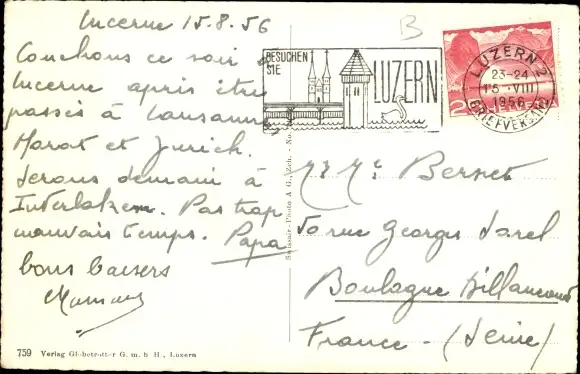 Lucerne 15.8.56
Couchons ce soir à
Lucerne après être
passés à Lausanne
Morat et Zurich.
Serons demain à
Interlaken. Pas trop
mauvais temps. Papa
bons baisers
Maman
B
BESUCHEN
SIE
LUZERN
LUZERN 2
23-24
15. VIII
1956
BRIEFVERSAND
Mr Me Bernet
50 rue Georges Sorel
Boulogne Billancourt
France - (Seine)
Swissair-Photo A G., Zch. - No.
759 Verlag Globetrotter G. m. b H., Luzern